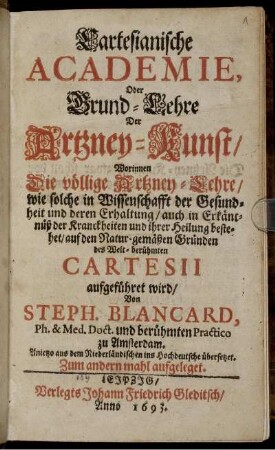 Cartesianische
ACADEMIE,
Oder
Grund-Lehre
Der
Artzney-Kunst/
Worinnen
Die völlige Artzney-Lehre/
wie solche in Wissenschafft der Gesund-
heit und deren Erhaltung/ auch in Erkänt-
nüß der Kranckheiten und ihrer Heilung beste-
het/ auf den Natur-gemäßen Gründen
des Welt-berühmten
CARTESII
aufgeführet wird/
Von
STEPH. BLANCARD,
Ph. & Med. Doct. und berühmten Practico
zu Amsterdam.
Anietzo aus dem Niederländischen ins Hochdeutsche übersetzet.
Zum andern mahl aufgeleget.
LEIPZIG/
Verlegts Johann Friedrich Gleditsch/
Anno 1693.